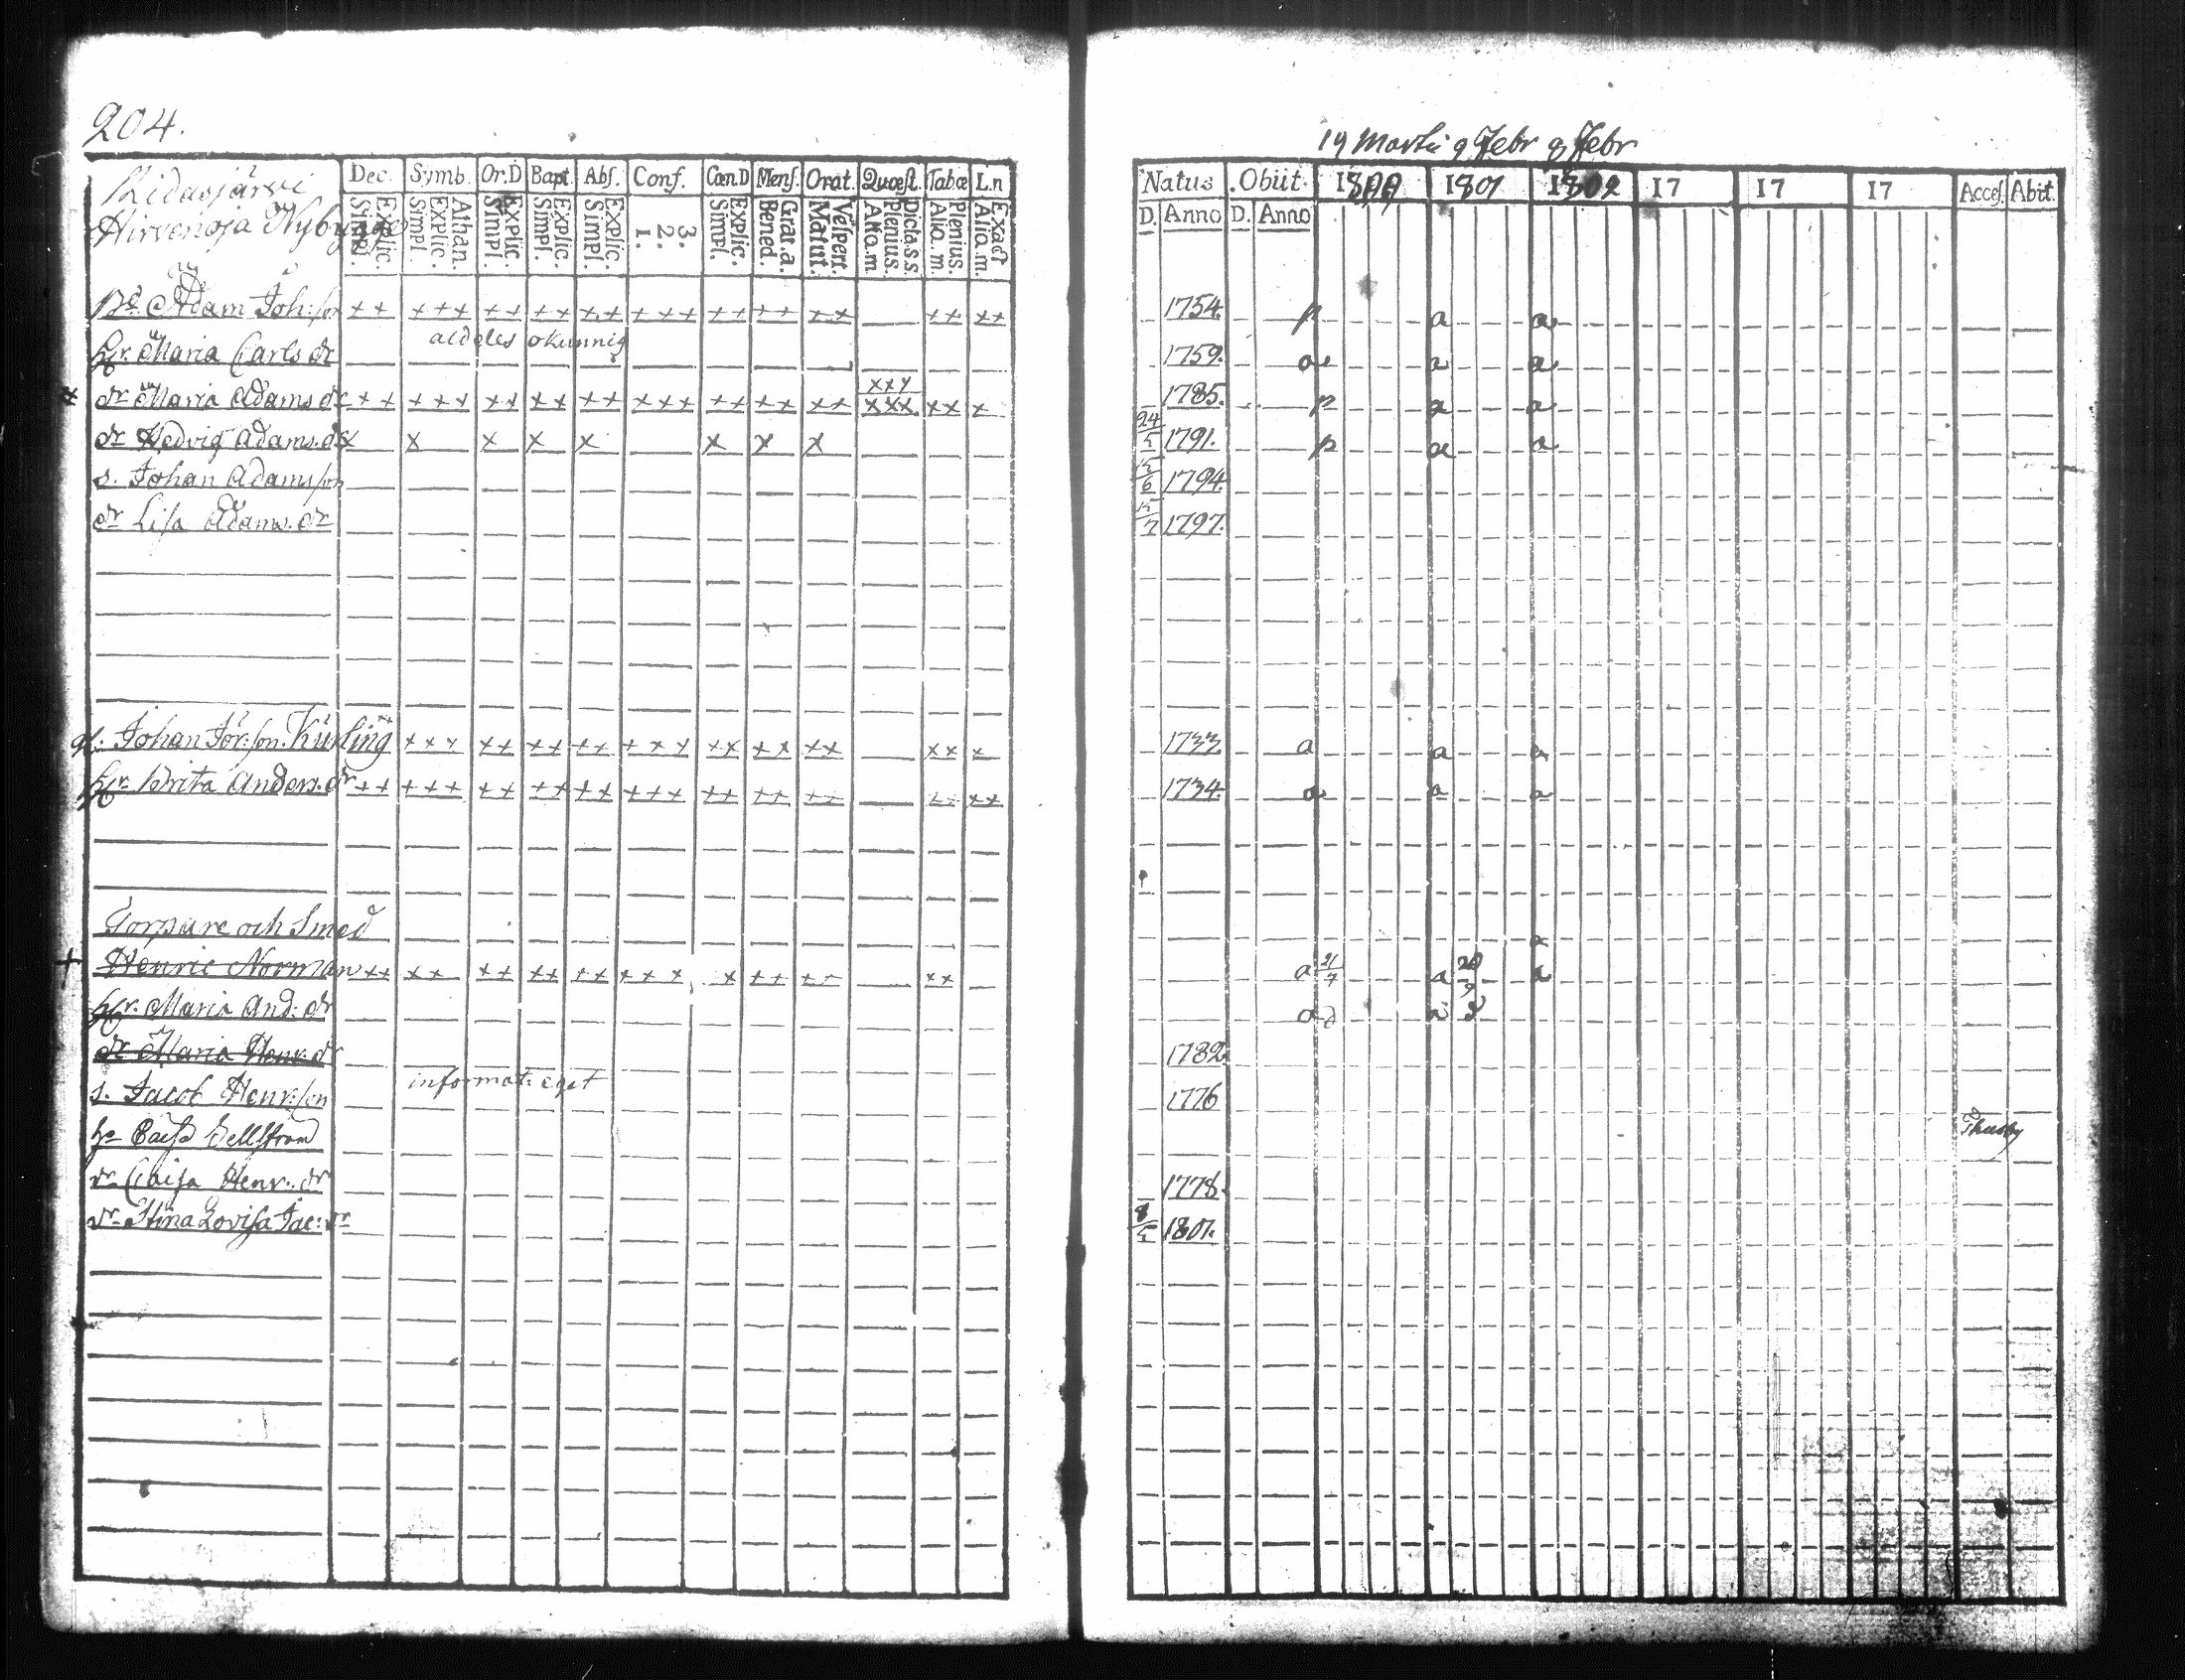 204.
19 Martii 9 Febr 9 Febr
Dec. Symb. Or.D Bapt. Abſ. Conf. Cœn.D Menſ. Orat. Quœſt. Tab.œ L.n
Explic. Simpl. Athan. Explic. Simpl. Explic. Simpl. Explic. Simpl. Explic. Simpl. 3. 2. 1. Explic. Simpl. Grat.a. Bened. Veſpert. Matut. Dicta.s.s. Plenius. Alio.m. Plenius. Alio.m. Exact Alio.m.
Natus Obiit. 1800 1801 1802 17 17 17 Acceſ. Abiit.
D. Anno D. Anno
Hirvenoja Nybygge
Adam Joh:ſon ++ +++ ++ ++ ++ +++ ++ ++ ++ ++ ++ 1754. p a a
alldeles okunnig
hr Maria Carls dr 1759. a a a
dr Maria Adams dr ++ +++ ++ ++ ++ +++ ++ ++ ++ xxx xxx ++ + 1785. p a a
dr Hedvig Adams.dr x x x x x x x x 24/5 1791. p a a
s. Johan Adamsſon 1794.
dr Liſa Adams.dr 1797.
Johan Jör:ſon. ++ +++ ++ ++ ++ +++ ++ ++ ++ ++ + 1733 a a a
hr Brita Anders.dr ++ +++ ++ ++ ++ +++ ++ ++ ++ ++ ++ 1734. a a a
Torpare och Smed
+ Henric Norman ++ ++ ++ ++ ++ +++ + ++ ++ ++ a 21/7 a a
hr. Maria And: dr a a
dr Maria Henr: dr 1782
informat: eget
s. Jacob Henr:ſon 1776
h. Caiſa Hellſtröm Thusby
dr Caiſa Henr: dr 1778.
dr Stina Loviſa Jac: dr 8/5 1801.